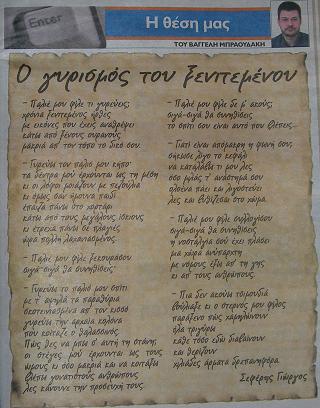 Enter
Η θέση μας
ΤΟΥ ΒΑΓΓΕΛΗ ΜΠΡΑΟΥΔΑΚΗ
Ο γυρισμός του ξενιτεμένου
- Παλιέ μου φίλε τι γυρεύεις;
χρόνια ξενιτεμένος ήρθες
με εικόνες που έχεις αναθρέψει
κάτω από ξένους ουρανούς
μακριά απ' τον τόπο το δικό σου.
- Γυρεύω τον παλιό μου κήπο·
τα δέντρα μου έρχουνται ως τη μέση
κι οι λόφοι μοιάζουν με πεζούλια
κι όμως σαν ήμουνα παιδί
έπαιζα πάνω στο χορτάρι
κάτω από τους μεγάλους ίσκιους
κι έτρεχα πάνω σε πλαγιές
ώρα πολλή λαχανιασμένος.
- Παλιέ μου φίλε ξεκουράσου
σιγά-σιγά θα συνηθίσεις·
- Γυρεύω το παλιό μου σπίτι
με τ' αψηλά τα παραθύρια
σκοτεινιασμένα απ' τον κισσό
γυρεύω την αρχαία κολόνα
που κοίταζε ο θαλασσινός.
Πώς θες να μπω σ' αυτή τη στάνη;
οι στέγες μου έρχουνται ως τους
ώμους κι όσο μακριά και να κοιτάξω
βλέπω γονατιστούς ανθρώπους
λες κάνουνε την προσευχή τους.
- Παλιέ μου φίλε δε μ' ακούς;
σιγά-σιγά θα συνηθίσεις
το σπίτι σου είναι αυτό που βλέπεις
- Γιατί είναι απόμακρη η φωνή σου;
σήκωσε λίγο το κεφάλι
να καταλάβω τι μου λες
όσο μιλάς τ' ανάστημά σου
ολοένα πάει και λιγοστεύει
λες και βυθίζεσαι στο χώμα.
- Παλιέ μου φίλε συλλογίσου
σιγά-σιγά θα συνηθίσεις
η νοσταλγία σού έχει πλάσει
μια χώρα ανύπαρχτη
με νόμους έξω απ' τη γης
κι απ' τους ανθρώπους.
- Πια δεν ακούω τσιμουδιά
βούλιαξε κι ο στερνός μου φίλος
παράξενο πώς χαμηλώνουν
όλα τριγύρω
κάθε τόσο εδώ διαβαίνουν
και θερίζουν
χιλιάδες άρματα δρεπανηφόρα.
Σεφέρης Γιώργος